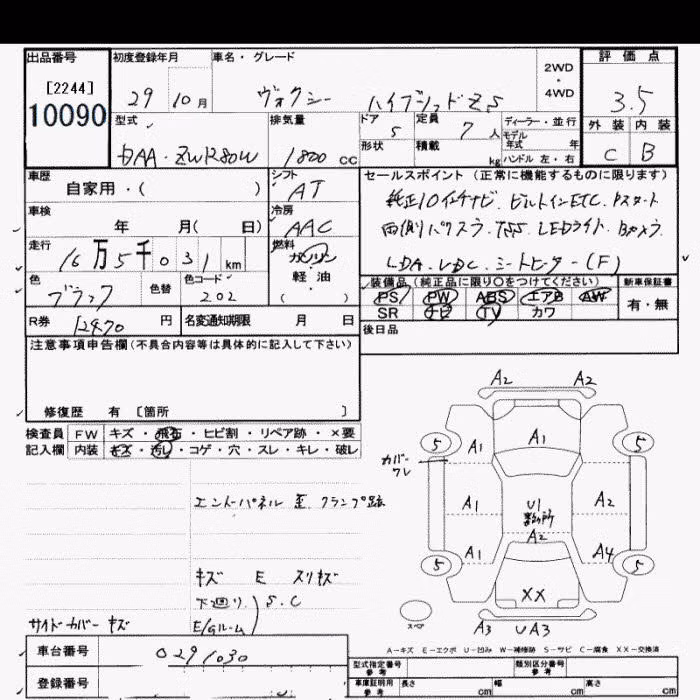 出品番号 初度登録年月 車名・グレード 評価点
[2244] 2WD
10090 29 10月 ヴォクシー ハイブリッドZS ・
4WD 3.5
型式 排気量 ドア 定員 ディーラー・並行 外装 内装
DAA-ZWR80W 1800cc 5 7人 モデル年式 年 C B
形状 積載 kg ハンドル 左・右
車歴 シフト セールスポイント(正常に機能するものに限ります)
自家用・( ) AT 純正10インチナビ. ビルトインETC. Pスタート
車検 冷房 両側パワスラ. TSS. LEDライト. Bカメラ.
年 月( 日) AAC LDA. シートヒーター(F)
走行 燃料
16万5千031km ガソリン・軽油・( )
色 色替 色コード 装備品(純正品に限り○をつけてください) 新車保証書
ブラック 202 PS PW ABS エアB AW 有・無
SR ナビ TV カワ
R券 12970円 名変通知期限 月 日 後日品
注意事項申告欄(不具合内容等は具体的に記入して下さい)
修復歴 有 [箇所 ]
検査員 FW キズ・飛石・ヒビ割・リペア跡・×要
記入欄 内装 キズ・汚れ・コゲ・穴・スレ・キレ・破レ
A2 A2
5 A1 A1 5
カバーワレ
エンドパネル 歪 クランプ跡
A1 U1 A2
A2
5 A1 A4 5
キズ E スリキズ
XX
下回り S.C
E/Gルーム
サイドカバー キズ
スペア
A3 UA3
A-キズ E-エクボ U-凹み W-補修跡 S-サビ C-腐食 XX-交換済
車台番号 0291030
型式指定番号 参考 類別区分番号 参考
登録番号 車庫証明用 参考 長さ cm 幅 cm 高さ cm